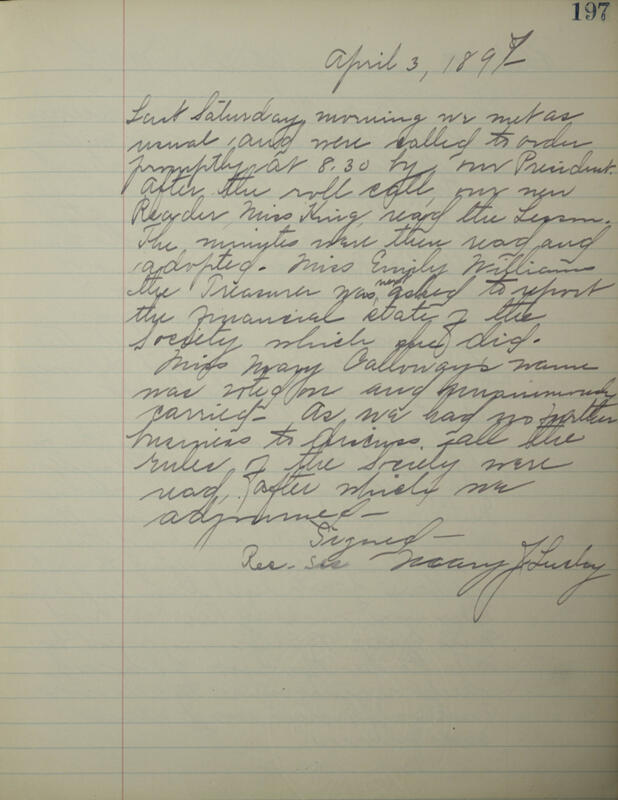 197
April 3, 1897
Last Saturday morning we met as
usual, and were called to order
promptly at 8.30 by our President.
After the roll call, our new
Reader, Miss King, read the Lesson.
The minutes were then read and
adopted. Miss Emily Williams
the Treasurer was next asked to report
the financial state of the
Society which she did.
Miss Mary Galloway's name
was voted on and unanimously
carried - As we had no further
business to discuss, all the
rules of the Society were
read, after which we
adjourned -
Signed -
Rec - Sec Mary J. Lusby